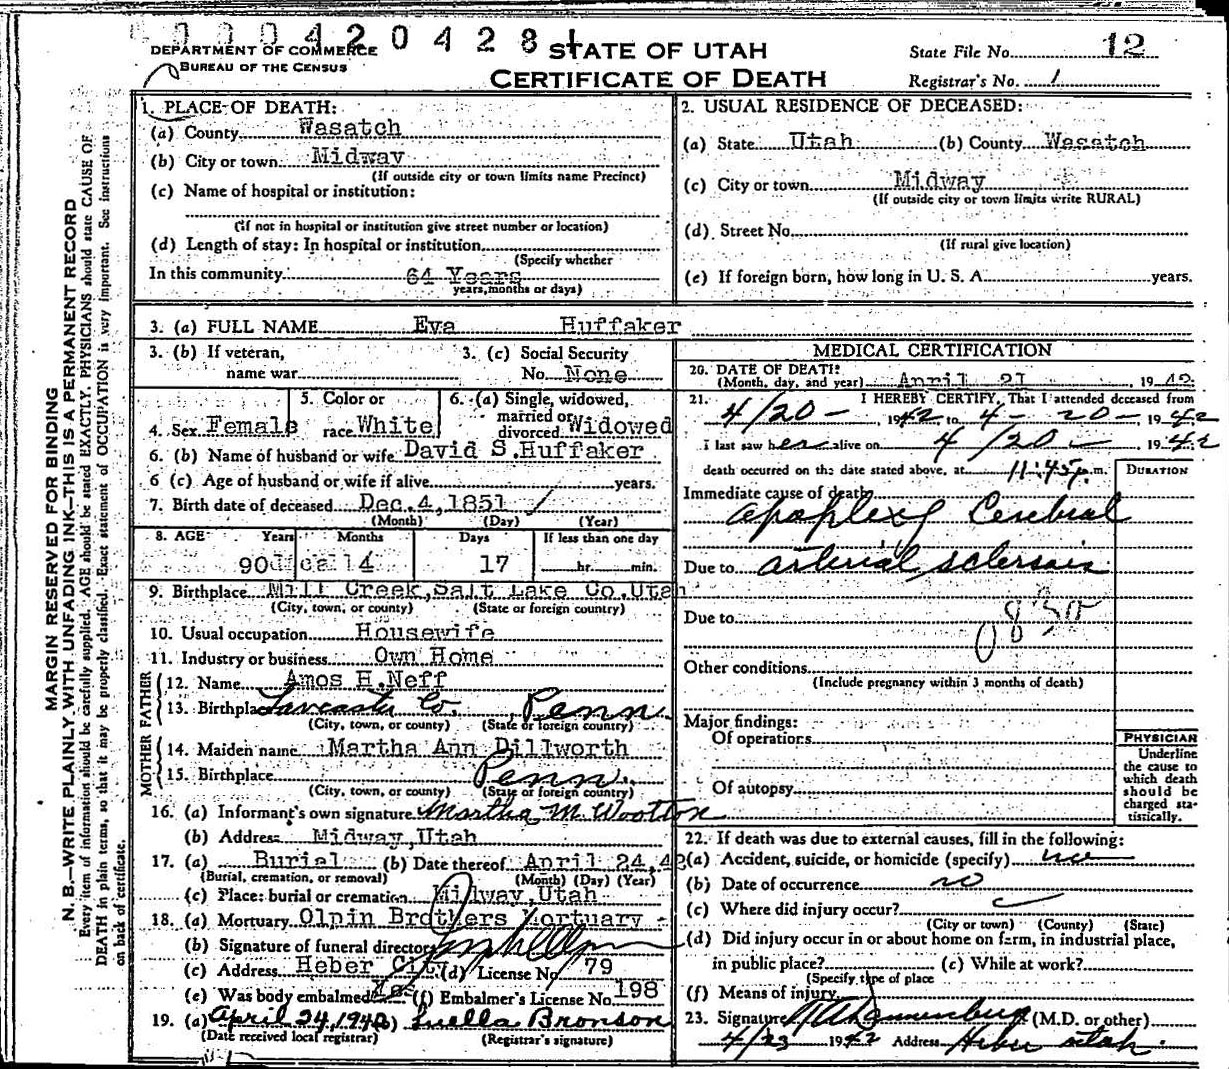 0 0 0 4 2 0 4 2 8 1
DEPARTMENT OF COMMERCE
BUREAU OF THE CENSUS
STATE OF UTAH
CERTIFICATE OF DEATH
State File No. 12
Registrar's No. 1
MARGIN RESERVED FOR BINDING
N. B.—WRITE PLAINLY WITH UNFADING INK—THIS IS A PERMANENT RECORD
Every item of information should be carefully supplied. AGE should be stated EXACTLY. PHYSICIANS should state CAUSE OF
DEATH in plain terms, so that it may be properly classified. Exact statement of OCCUPATION is very important. See instructions
on back of certificate.
1. PLACE OF DEATH:
(a) County Wasatch
(b) City or town Midway
(If outside city or town limits name Precinct)
(c) Name of hospital or institution:
(If not in hospital or institution give street number or location)
(d) Length of stay: In hospital or institution
(Specify whether
In this community 64 Years
years, months or days)
2. USUAL RESIDENCE OF DECEASED:
(a) State Utah (b) County Wasatch
(c) City or town Midway
(If outside city or town limits write RURAL)
(d) Street No.
(If rural give location)
(e) If foreign born, how long in U. S. A. years.
3. (a) FULL NAME Eva Huffaker
3. (b) If veteran,
name war
3. (c) Social Security
No. None
4. Sex Female
5. Color or
race White
6. (a) Single, widowed,
married or
divorced Widowed
6. (b) Name of husband or wife David S. Huffaker
6 (c) Age of husband or wife if alive years.
7. Birth date of deceased Dec. 4, 1851
(Month) (Day) (Year)
8. AGE Years Months Days If less than one day
90 4 17 hr. min.
9. Birthplace Mill Creek, Salt Lake Co. Utah
(City, town, or county) (State or foreign country)
10. Usual occupation Housewife
11. Industry or business Own Home
FATHER
12. Name Amos H. Neff
13. Birthplace Lancaster Co. Penn.
(City, town, or county) (State or foreign country)
MOTHER
14. Maiden name Martha Ann Dillworth
15. Birthplace Penn.
(City, town, or county) (State or foreign country)
16. (a) Informant's own signature Martha M. Wootton
(b) Address Midway, Utah
17. (a) Burial (b) Date thereof April 24, 42
(Burial, cremation, or removal) (Month) (Day) (Year)
(c) Place: burial or cremation Midway, Utah
18. (a) Mortuary Olpin Brothers Mortuary
(b) Signature of funeral director
(c) Address Heber City (d) License No. 79
(e) Was body embalmed Yes (f) Embalmer's License No. 198
19. (a) April 24, 1942 (b) Luella Bronson
(Date received local registrar) (Registrar's signature)
MEDICAL CERTIFICATION
20. DATE OF DEATH:
(Month, day, and year) April 21, 1942
21. I HEREBY CERTIFY, That I attended deceased from
4/20 - 1942 to 4 - 20 - 1942
I last saw her alive on 4/20 1942
death occurred on the date stated above, at 11:45 p. m.
DURATION
Immediate cause of death
apoplexy Cerebral
Due to arterial sclerosis
Due to
Other conditions
(Include pregnancy within 3 months of death)
Major findings:
Of operations
Of autopsy
PHYSICIAN
Underline
the cause to
which death
should be
charged sta-
tistically.
22. If death was due to external causes, fill in the following:
(a) Accident, suicide, or homicide (specify) no
(b) Date of occurrence no
(c) Where did injury occur?
(City or town) (County) (State)
(d) Did injury occur in or about home on farm, in industrial place,
in public place? (e) While at work?
(Specify type of place
(f) Means of injury
23. Signature (M.D. or other)
4/23 1942 Address Heber Utah